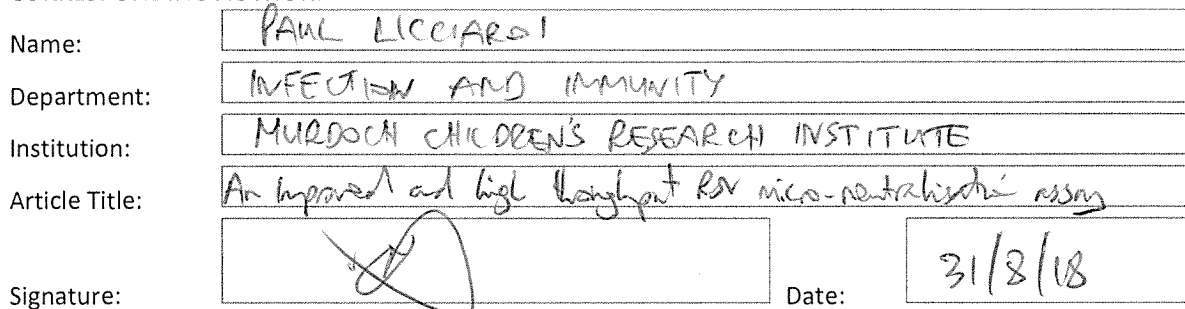 Name: PAUL LICCIARDI
Department: INFECTION AND IMMUNITY
Institution: MURDOCH CHILDREN'S RESEARCH INSTITUTE
Article Title: An improved and high throughput RSV micro-neutralisation assay
Signature: Date: 31/8/18